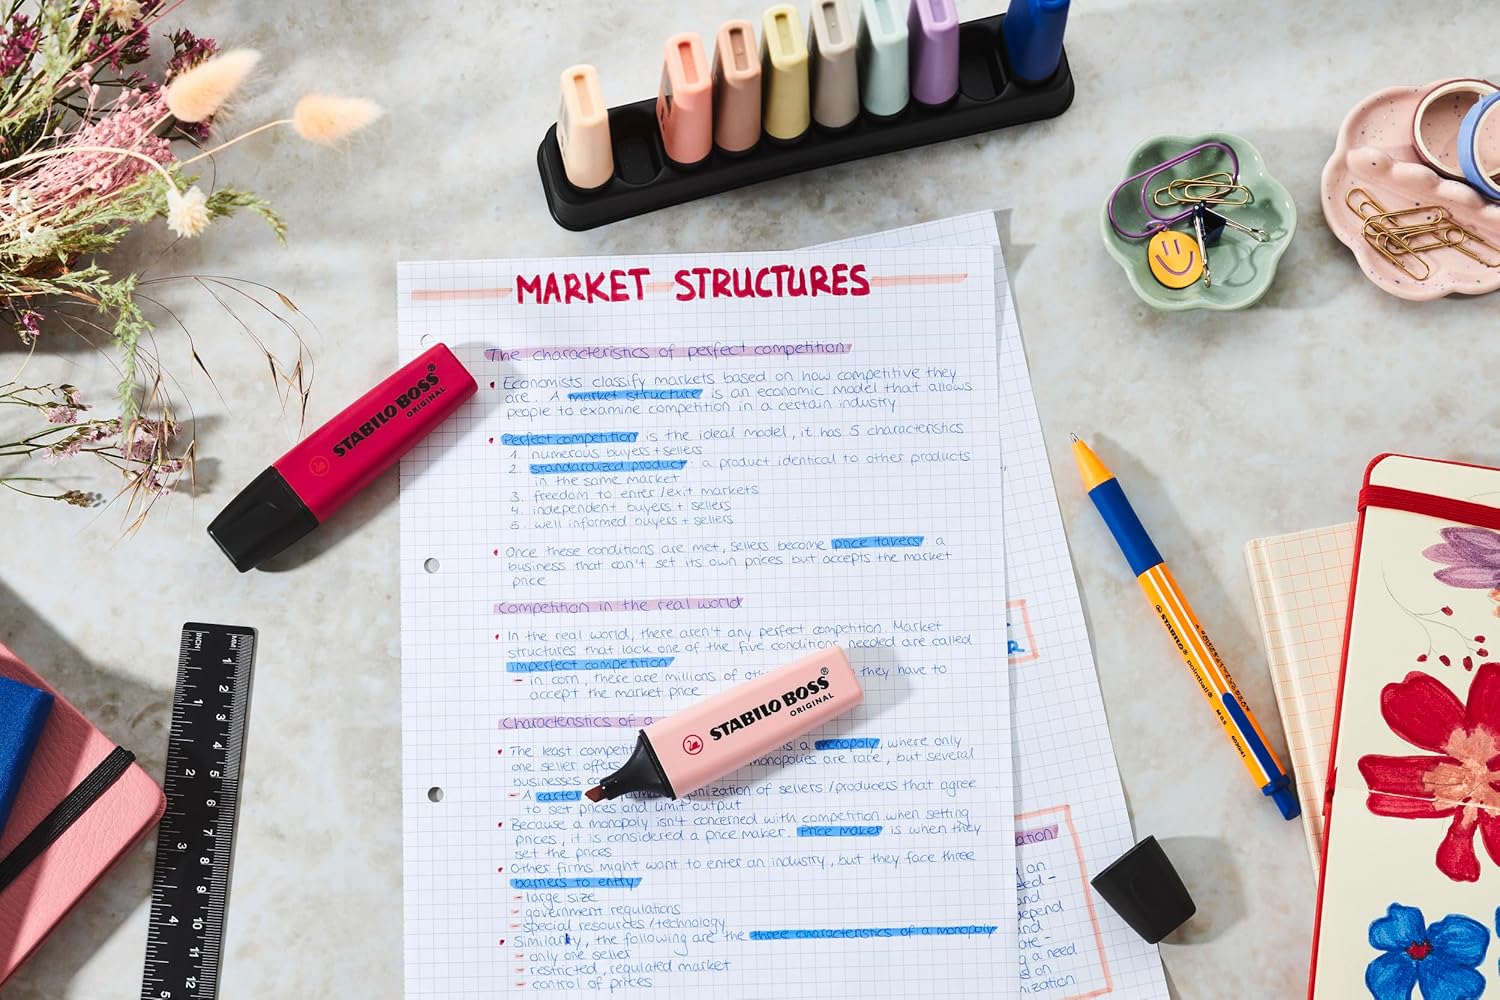 MARKET STRUCTURES
The characteristics of perfect competition
• Economists classify markets based on how competitive they
are. A market structure is an economic model that allows
people to examine competition in a certain industry
• Perfect competition is the ideal model, it has 5 characteristics
1. numerous buyers + sellers
2. standardized product: a product identical to other products
in the same market
3. freedom to enter/exit markets
4. independent buyers + sellers
5. well informed buyers + sellers
• Once these conditions are met, sellers become price takers: a
business that can't set its own prices but accepts the market
price
Competition in the real world
• In the real world, there aren't any perfect competition. Market
structures that lack one of the five conditions needed are called
imperfect competition
- in corn, there are millions of they have to
accept the market price
Characteristics of a
• The least is a monopoly, where only
one seller offers monopolies are rare, but several
businesses
- A cartel of sellers/producers that agree
to set prices and limit output
• Because a monopoly isn't concerned with competition when setting
prices, it is considered a price maker. Price maker is when they
set the prices
• Other firms might want to enter an industry, but they face three
barriers to entry
- large size
- government regulations
- special resources/technology
• Similarly, the following are the three characteristics of a monopoly
- only one seller
- restricted, regulated market
- control of prices
STABILO BOSS
ORIGINAL
STABILO BOSS
ORIGINAL
STABILO® pointball®
INCH MM
1
2
3
4
5
1
2
5
6
7
8
9
10
11
12
an
and
depend
and
a need
on